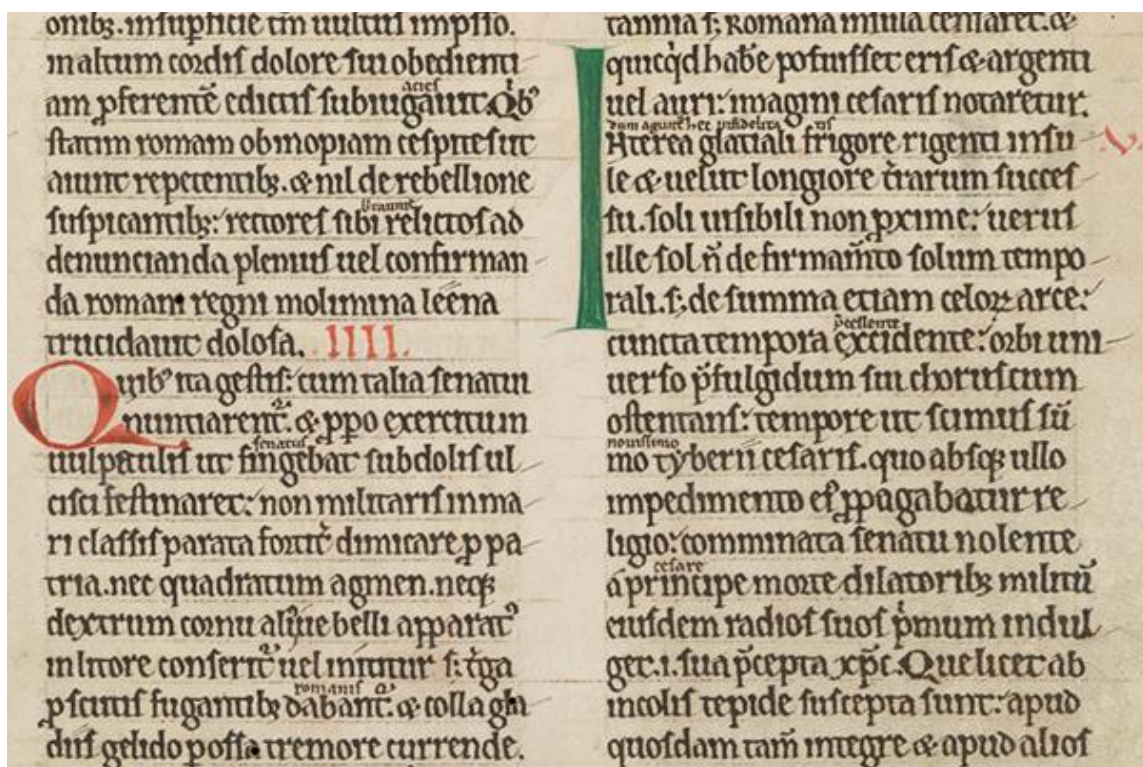 onibꝫ. insuꝑficie tm̄ uultus impsso.
in altum cordis dolore sui obedienti
acies
am ꝑferentē edictis subiugauit. Q̇bꝰ
statim romam ob inopiam cespites ut
aiunt repetentibꝫ. & nil de rebellione
suspicantibꝫ: rectores sibi relictos ad
denuncianda plenius uel confirman
da romani regni molimina leena
trucidauit dolosa. IIII.
Quibꝰ ita gestis: cum talia senatui
nuntiarent᷑. & ꝓpo exercitum
senatus
uulpeculis ut fingebat subdolis ul
cisci festinaret: non militaris in ma
ri classis parata fortit̄ dimicare ꝓ pa
tria. nec quadratum agmen. neqꝫ
dextrum cornu aliive belli apparatꝰ
in litore conserit᷑ uel innitur s; t̄ga
romanis
ꝑ scutis fugantibꝫ dabant᷑. & colla gla
diis gelido ꝑ ossa tremore currende.
tannia s; Romana insula censaret᷑. &
quicq̇d habē potuisset eris & argenti
uel auri: imagini cesaris notaretur.
dum agurēt hec
INterea glatiali frigore rigenti insu
V.
le & uelut longiore t̄rarum succes
su. soli uisibili non ꝓxime: uerus
ille sol n̄ de firmam̄to solum tempo
rali. s; de summa etiam celoꝝ arce:
p̄cellente
cuncta tempora excidente: orbi uni
uerso p̄fulgidum sui choruscum
ostentans: tempore ut scimus sū
nouissimo
mo tyberii cesaris. quo absqꝫ ullo
impedimento eiꝰ ꝓpagabatur re
ligio: comminata senatu nolente
cesare
a principe morte dilatoribꝫ militū
eiusdem radios suos p̍mum indul
get. i. sua p̄cepta xp̄c. Que licet ab
incolis tepide suscepta sunt: apud
quosdam tam̄ integre & apud alios